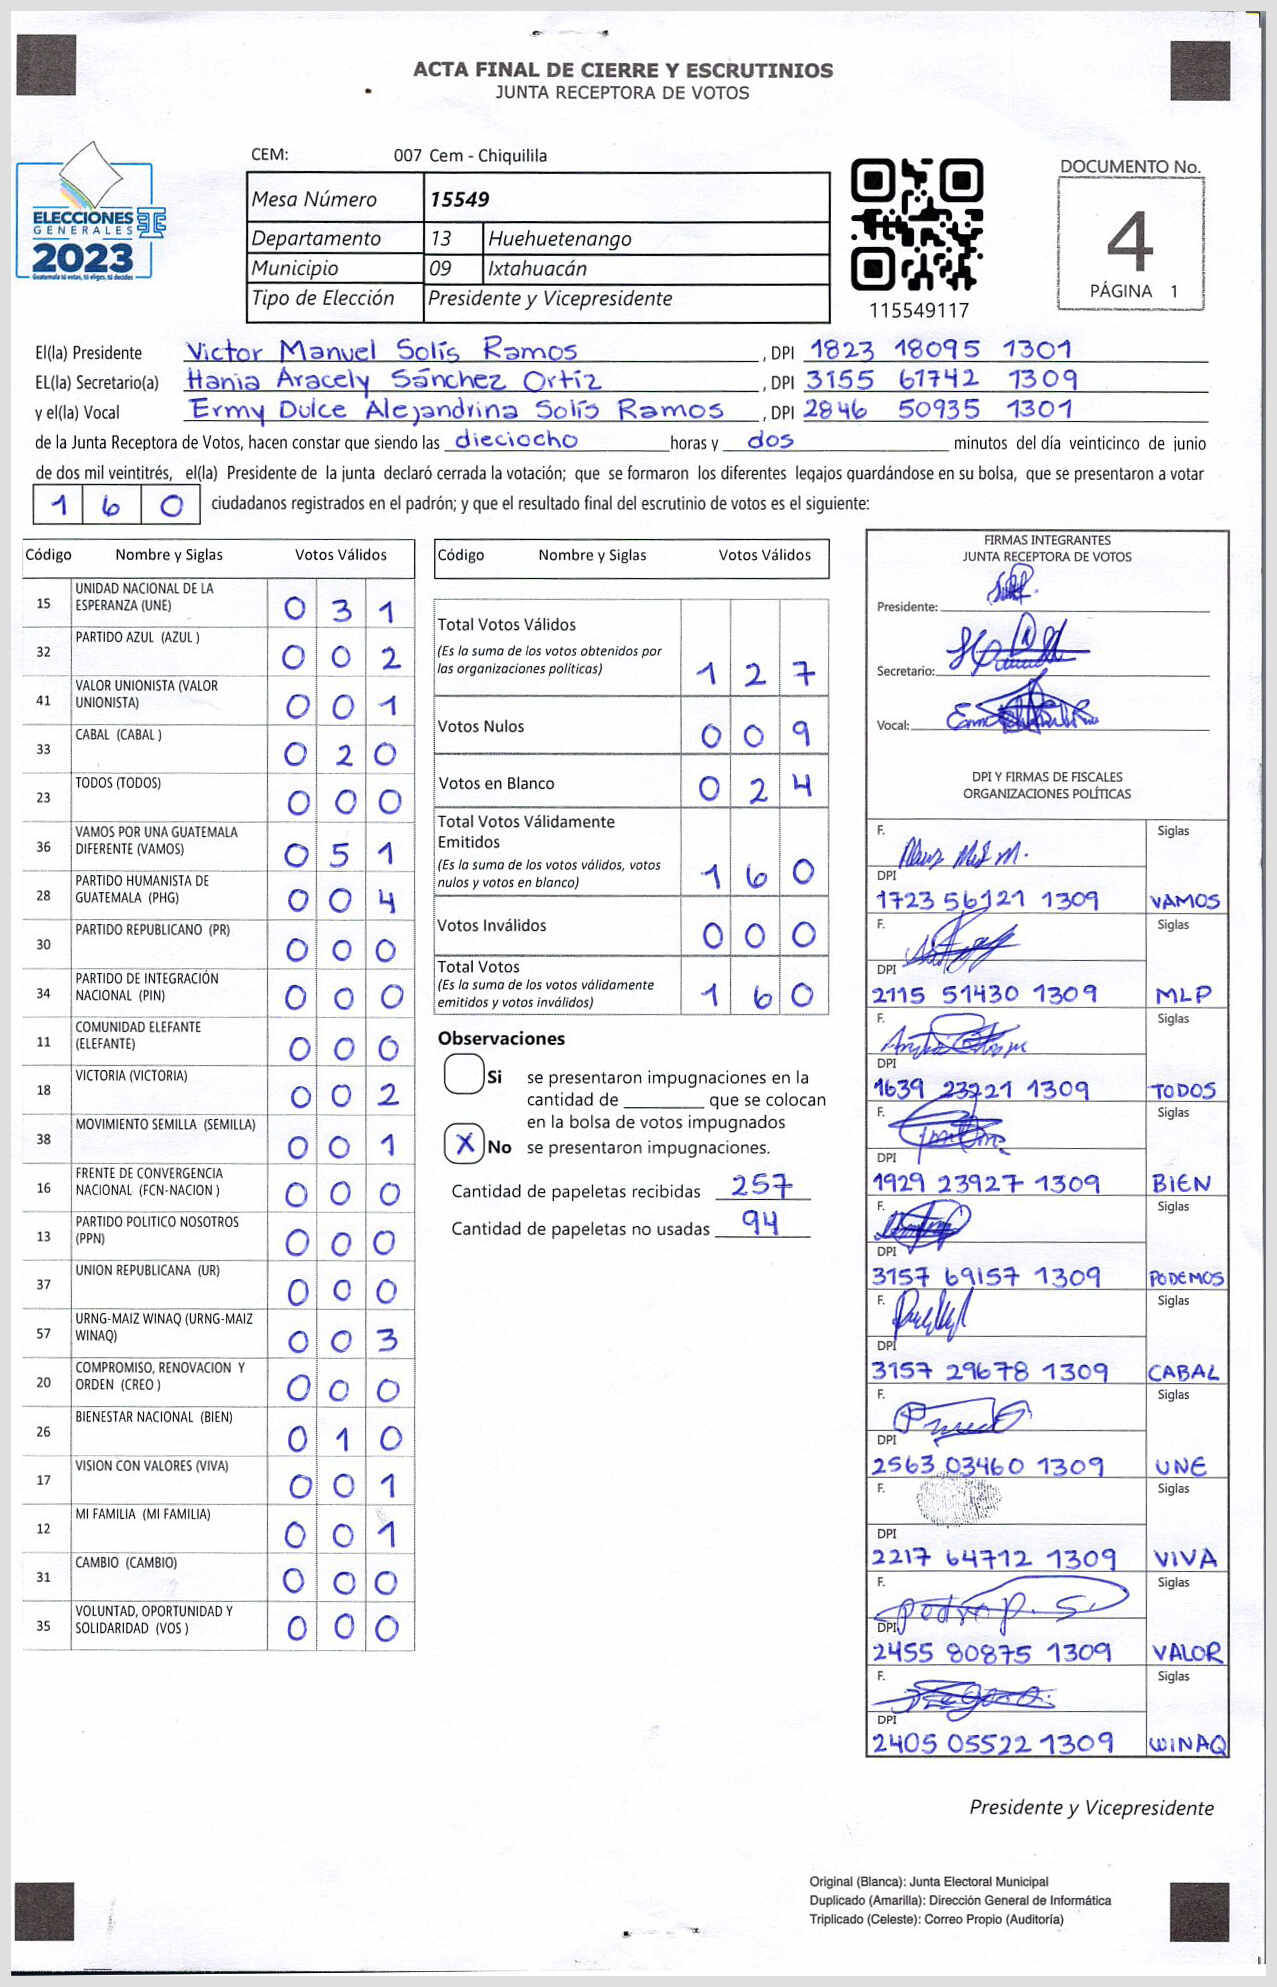 ACTA FINAL DE CIERRE Y ESCRUTINIOS
JUNTA RECEPTORA DE VOTOS
ELECCIONES
GENERALES
2023
Guatemala tú votas, tú eliges, tú decides
CEM: 007 Cem - Chiquilila
Mesa Número 15549
Departamento 13 Huehuetenango
Municipio 09 Ixtahuacán
Tipo de Elección Presidente y Vicepresidente
115549117
DOCUMENTO No.
4
PÁGINA 1
El(la) Presidente Victor Manuel Solís Ramos , DPI 1823 18095 1301
EL(la) Secretario(a) Hania Aracely Sánchez Ortíz , DPI 3155 61742 1309
y el(la) Vocal Ermy Dulce Alejandrina Solís Ramos , DPI 2846 50935 1301
de la Junta Receptora de Votos, hacen constar que siendo las dieciocho horas y dos minutos del día veinticinco de junio
de dos mil veintitrés, el(la) Presidente de la junta declaró cerrada la votación; que se formaron los diferentes legajos guardándose en su bolsa, que se presentaron a votar
160 ciudadanos registrados en el padrón; y que el resultado final del escrutinio de votos es el siguiente:
Código Nombre y Siglas Votos Válidos
15 UNIDAD NACIONAL DE LA ESPERANZA (UNE) 031
32 PARTIDO AZUL (AZUL ) 002
41 VALOR UNIONISTA (VALOR UNIONISTA) 001
33 CABAL (CABAL ) 020
23 TODOS (TODOS) 000
36 VAMOS POR UNA GUATEMALA DIFERENTE (VAMOS) 051
28 PARTIDO HUMANISTA DE GUATEMALA (PHG) 004
30 PARTIDO REPUBLICANO (PR) 000
34 PARTIDO DE INTEGRACIÓN NACIONAL (PIN) 000
11 COMUNIDAD ELEFANTE (ELEFANTE) 000
18 VICTORIA (VICTORIA) 002
38 MOVIMIENTO SEMILLA (SEMILLA) 001
16 FRENTE DE CONVERGENCIA NACIONAL (FCN-NACION ) 000
13 PARTIDO POLITICO NOSOTROS (PPN) 000
37 UNION REPUBLICANA (UR) 000
57 URNG-MAIZ WINAQ (URNG-MAIZ WINAQ) 003
20 COMPROMISO, RENOVACION Y ORDEN (CREO ) 000
26 BIENESTAR NACIONAL (BIEN) 010
17 VISION CON VALORES (VIVA) 001
12 MI FAMILIA (MI FAMILIA) 001
31 CAMBIO (CAMBIO) 000
35 VOLUNTAD, OPORTUNIDAD Y SOLIDARIDAD (VOS ) 000
Código Nombre y Siglas Votos Válidos
Total Votos Válidos
(Es la suma de los votos obtenidos por
las organizaciones politicas) 127
Votos Nulos 009
Votos en Blanco 024
Total Votos Válidamente
Emitidos
(Es la suma de los votos válidos, votos
nulos y votos en blanco) 160
Votos Inválidos 000
Total Votos
(Es la suma de los votos válidamente
emitidos y votos inválidos) 160
Observaciones
Si se presentaron impugnaciones en la
cantidad de ________ que se colocan
en la bolsa de votos impugnados
X No se presentaron impugnaciones.
Cantidad de papeletas recibidas 257
Cantidad de papeletas no usadas 94
FIRMAS INTEGRANTES
JUNTA RECEPTORA DE VOTOS
Presidente:
Secretario:
Vocal:
DPI Y FIRMAS DE FISCALES
ORGANIZACIONES POLÍTICAS
F. Siglas
DPI
1723 56121 1309 VAMOS
F. Siglas
DPI
2115 51430 1309 MLP
F. Siglas
DPI
1639 23221 1309 TODOS
F. Siglas
DPI
1929 23927 1309 BIEN
F. Siglas
DPI
3157 69157 1309 PODEMOS
F. Siglas
DPI
3157 29678 1309 CABAL
F. Siglas
DPI
2563 03460 1309 UNE
F. Siglas
DPI
2217 64712 1309 VIVA
F. Siglas
DPI
2455 80875 1309 VALOR
F. Siglas
DPI
2405 05522 1309 WINAQ
Presidente y Vicepresidente
Original (Blanca): Junta Electoral Municipal
Duplicado (Amarilla): Dirección General de Informática
Triplicado (Celeste): Correo Propio (Auditoría)